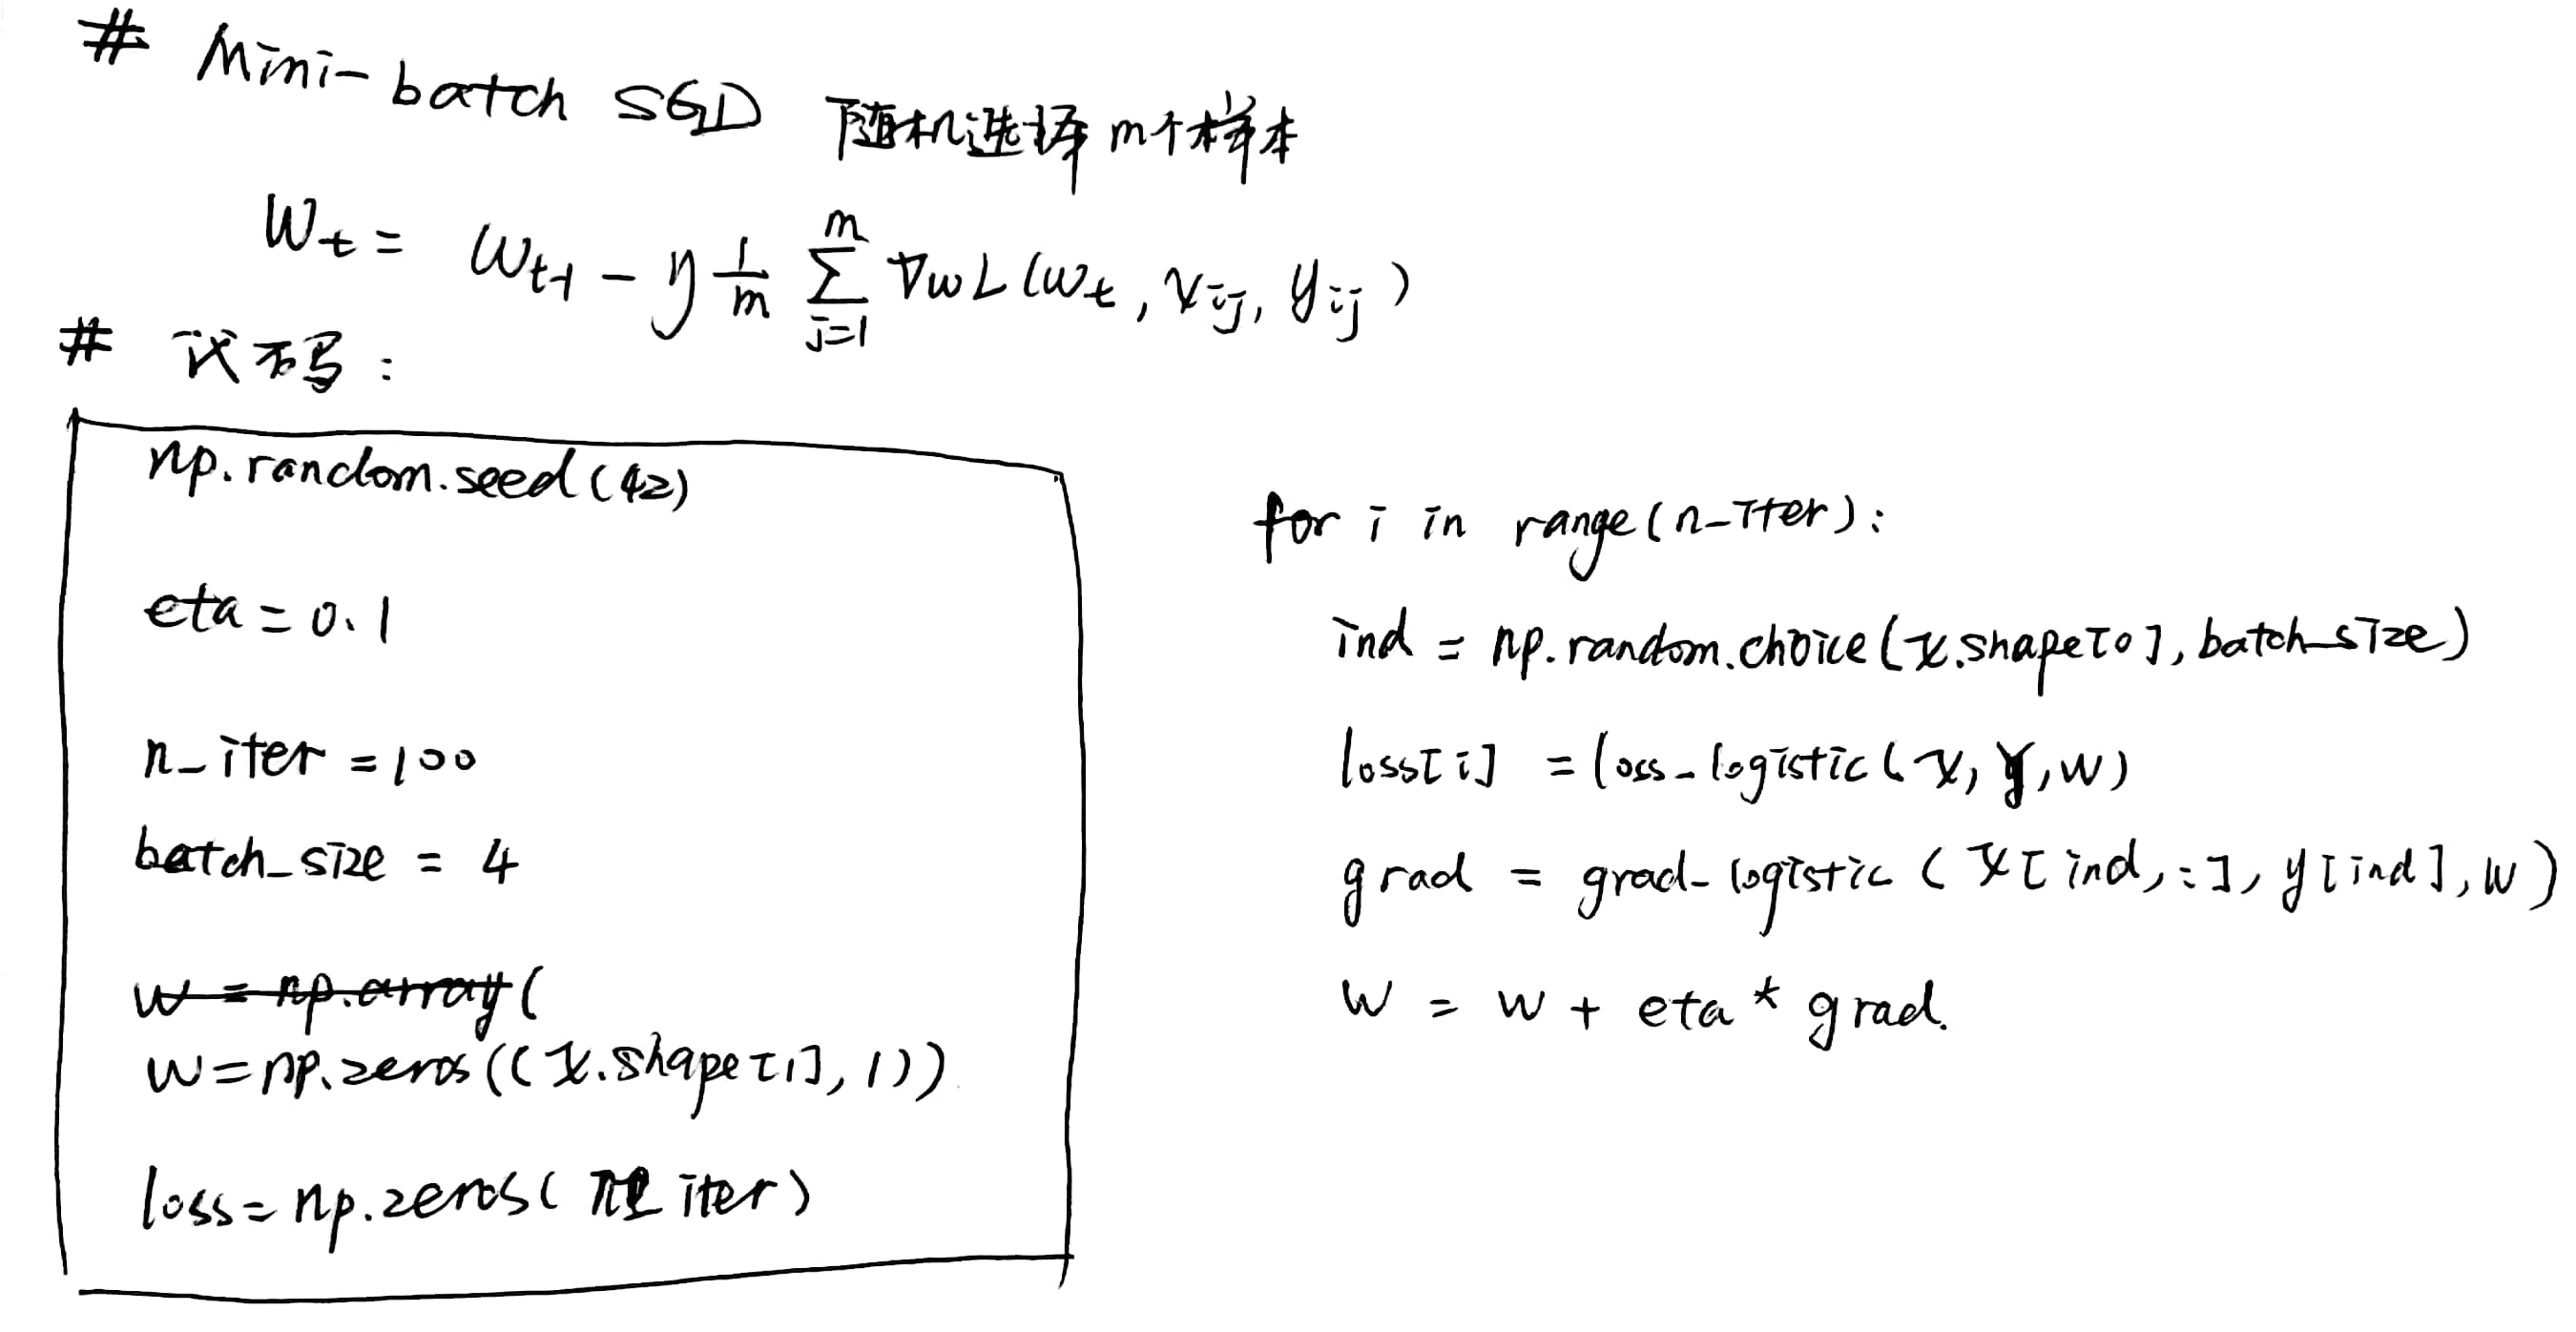 # Mini-batch SGD 随机选择m个样本
Wt = Wt-1 - η 1/m ∑ j=1 m ∇w L (wt, xij, yij)
# 代码:
np.random.seed(42)
eta = 0.1
n_iter = 100
batch_size = 4
w = np.array(
w = np.zeros((x.shape[1], 1))
loss = np.zeros( iter)
for i in range(n_iter):
ind = np.random.choice(x.shape[0], batch_size)
loss[i] = loss_logistic(x, y, w)
grad = grad_logistic(x[ind,:], y[ind], w)
w = w + eta * grad.